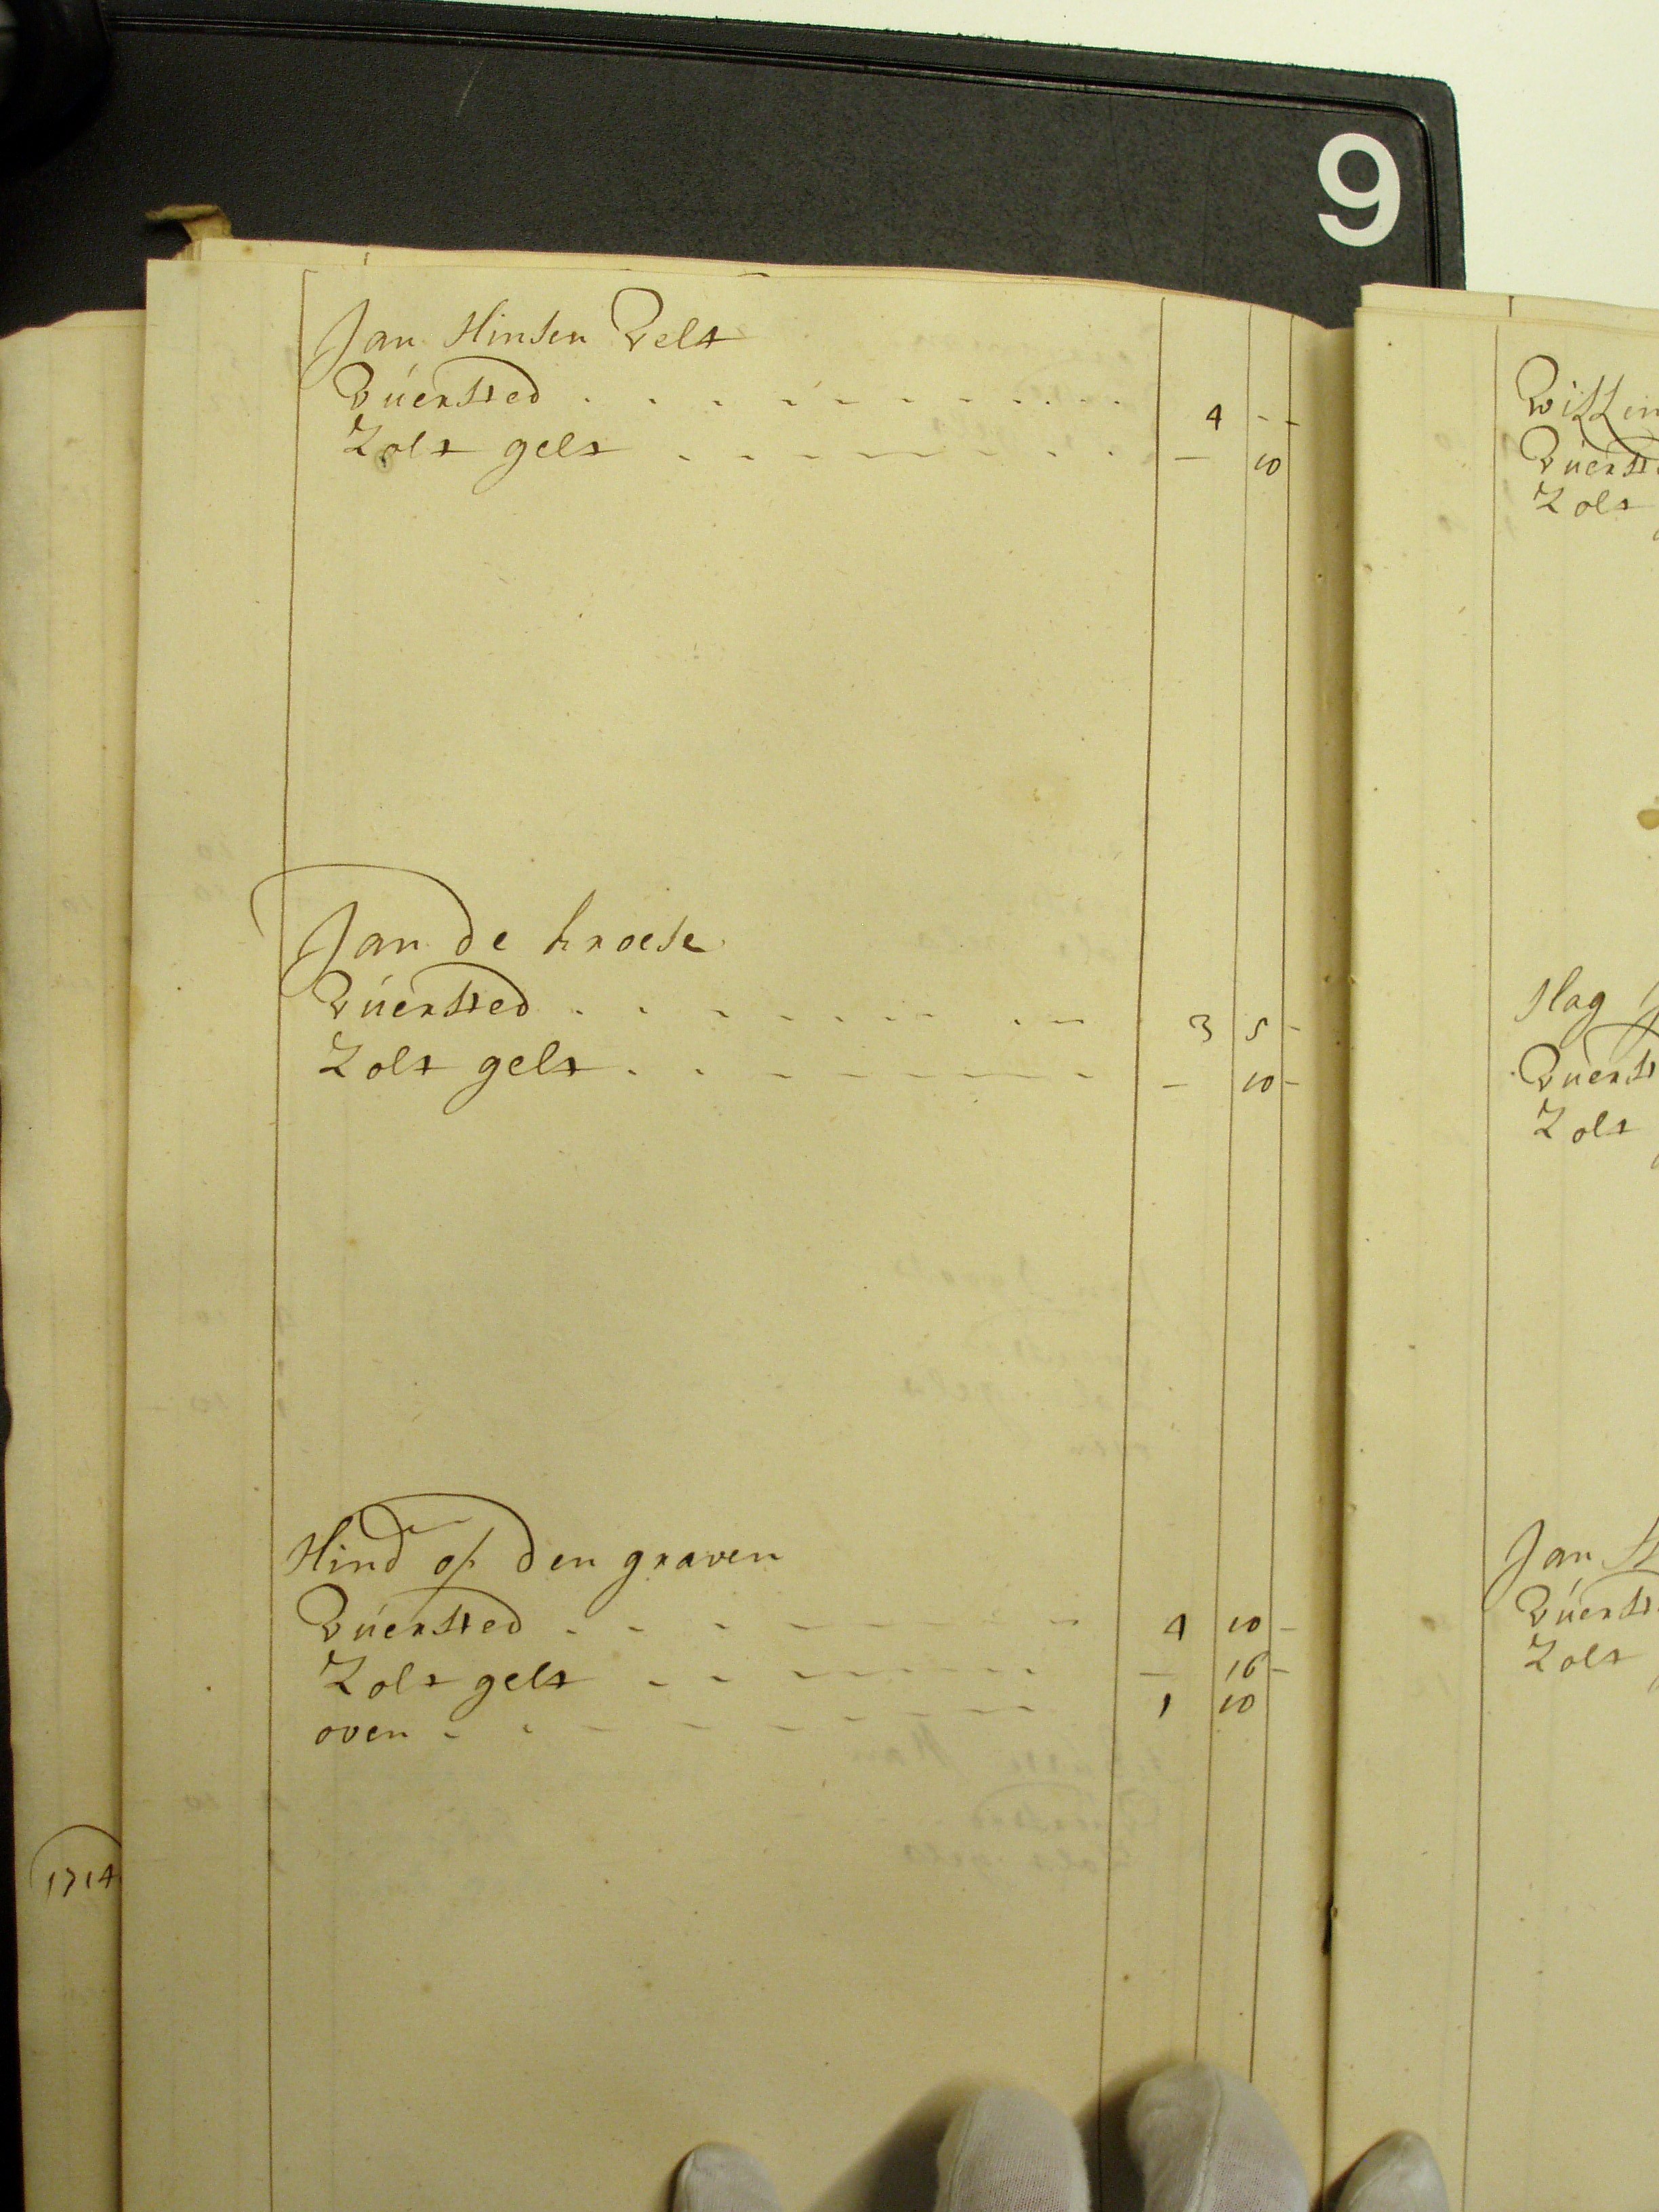 9
Jan Hinsen Velt
Vúersted . . . . . . . . . . . 4 - -
Zolt gelt . . . . . . . . . — 10
Jan de kroese
Vúersted . . . . . . . . . 3 5 -
Zolt gelt . . . . . . . . — 10 -
Hind op den graven
Vúersted . . . . . . . . 4 10 -
Zolt gelt . . . . . . . — 16 -
oven . . . . . . . . 1 10
1714
Vúerst
Zolt
Hag
Vuerst
Zolt
Jan
Vúerst
Zolt